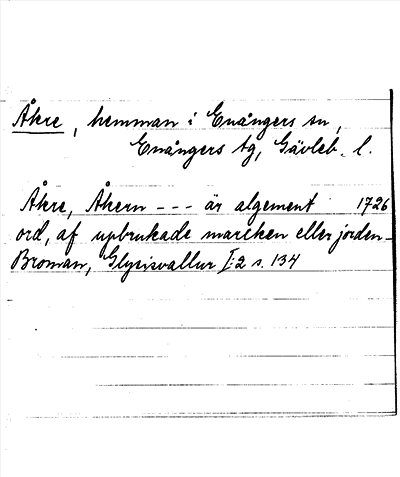 Åkre, hemman i Enångers sn,
Enångers tg, Gävleb. l.
Åkre, Åkern - - - är algement 1726
ord, af upbrukade marcken eller jorden -
Broman, Glysisvallur I:2 s. 134